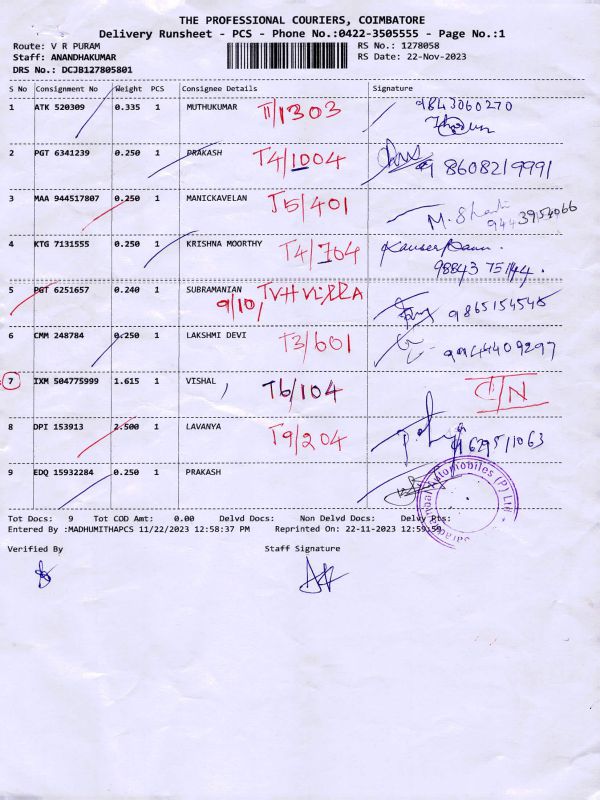 THE PROFESSIONAL COURIERS, COIMBATORE
Delivery Runsheet - PCS - Phone No.:0422-3505555 - Page No.:1
Route: V R PURAM
Staff: ANANDHAKUMAR
DRS No.: DCJB127805801
RS No.: 1278058
RS Date: 22-Nov-2023
S No Consignment No Weight PCS Consignee Details Signature
1 ATK 520309 0.335 1 MUTHUKUMAR T1/1303 9843060270
2 PGT 6341239 0.250 1 PRAKASH T4/1004 9860821 9991
3 MAA 944517807 0.250 1 MANICKAVELAN T5/401 M. Shanti 9443954066
4 KTG 7131555 0.250 1 KRISHNA MOORTHY T4/704 Kauser Banu.
98843 75144.
5 PGT 6251657 0.240 1 SUBRAMANIAN 9/10, TVH 9865154545
6 CMM 248784 0.250 1 LAKSHMI DEVI T3/601 9944409297
7 IXM 504775999 1.615 1 VISHAL T6/104 C/N
8 DPI 153913 2.500 1 LAVANYA T9/204
9 EDQ 15932284 0.250 1 PRAKASH
Automobiles (P) Ltd
Tot Docs: 9 Tot COD Amt: 0.00 Delvd Docs: Non Delvd Docs: Delvy Pts:
Entered By :MADHUMITHAPCS 11/22/2023 12:58:37 PM Reprinted On: 22-11-2023 12:59:59
Verified By Staff Signature